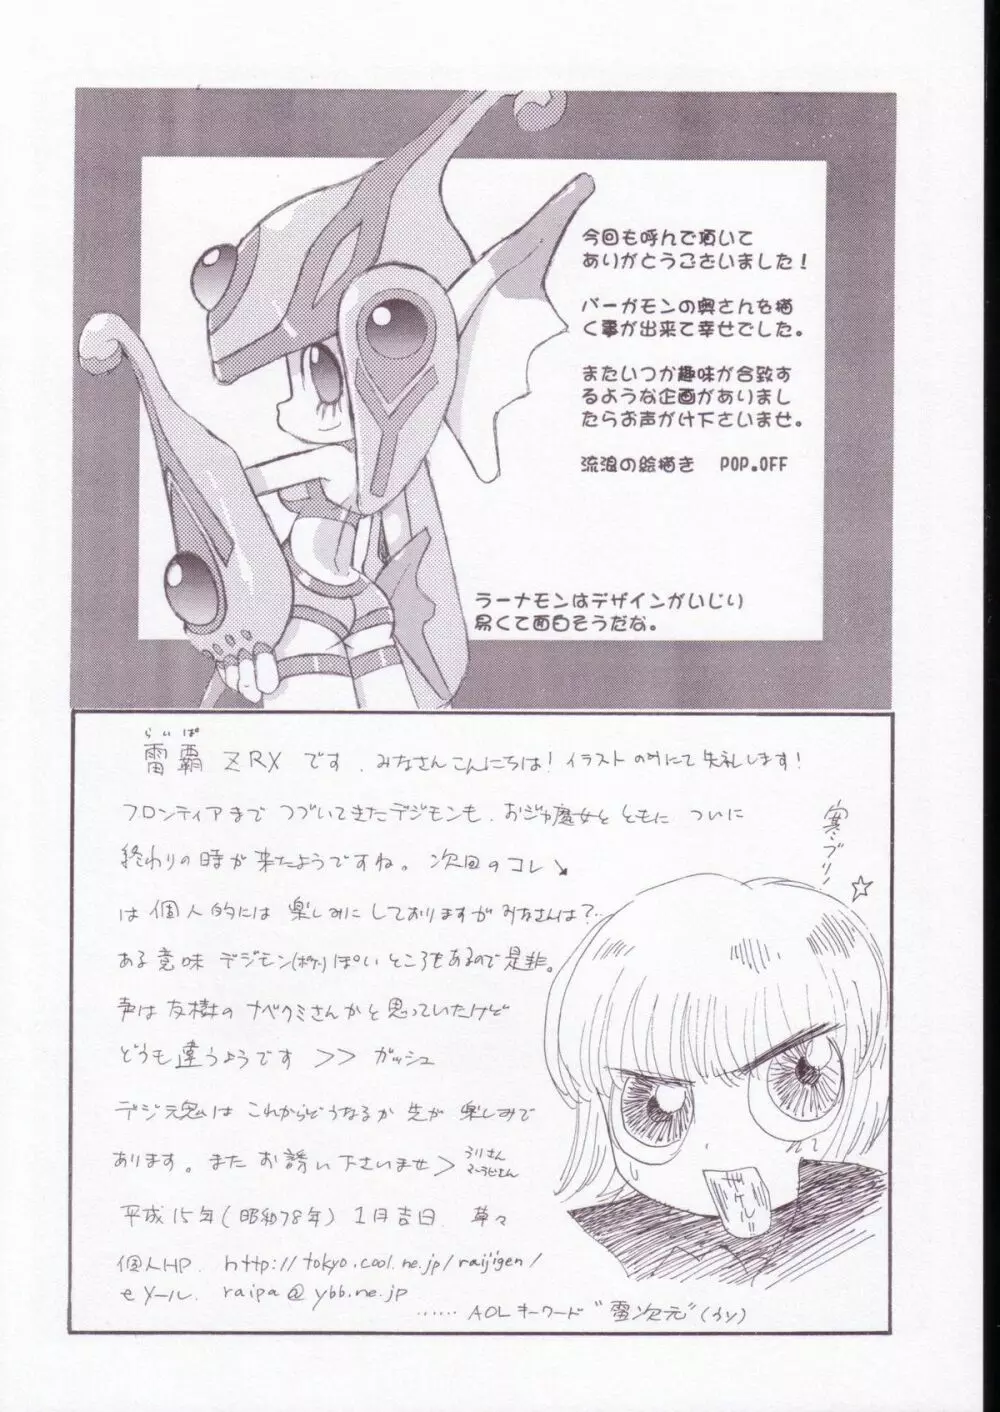 今回も呼んで頂いて
ありがとうございました！
バーガモンの奥さんを描
く事が出来て幸せでした。
またいつか趣味が合致す
るような企画がありまし
たらお声がけ下さいませ。
流浪の絵描き POP.OFF
ラーナモンはデザインがいじり
易くて面白そうだな。
らいぱ
雷覇 ZRX です、みなさんこんにちは！イラストのみにて失礼します！
フロンティアまで つづいてきたデジモンも、おジャ魔女と ともに ついに
終わりの時が来たようですね。次回のコレ↘
は個人的には 楽しみに しておりますが みなさんは？…
ある意味 デジモン(ポケ)ぽい ところもあるので是非。
声は友樹の ナベクミさんかと思っていたけど
どうも違うようです >> ガッシュ
デジ魂は これからどうなるか 先が 楽しみで
あります。また お誘い下さいませ>
平成15年(昭和78年) 1月吉日 草々
個人HP. http://tokyo.cool.ne.jp/raijigen/
eメール. raipa@ybb.ne.jp
…… AOLキーワード"雷次元"(うソ)
寒ブリ！
☆
ザケル!!